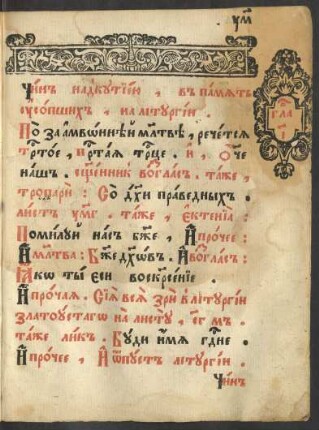 Чинъ надкутїею, въ памѧть
ѹсопшихъ, на лїтургїи
По заамвоннѣи мл҃твѣ, речетсѧ
трт҃ое, прт҃аѧ трⷪ҇це. и, Оч҃е
нашъ. сщ҃енникъ воглаⷭ҇. таже,
тропари: Со дх҃и праведныхъ.
листъ
таже, єктенїа:
Помилуй насъ бж҃е, Ипрочее:
Имл҃тва: Бж҃е дх҃ѡвъ. Ивоглаⷭ҇:
Ꙗкѡ ты єси воскр҃еенїе.
Ипрочаѧ. Сїѧ всѧ зри в лїтургїи
златоустагѡ на листу,
таже ликъ. Буди имѧ гдⷭ҇не.
Ипрочее, И ѿпустъ лїтургїи.
Чинъ
гла